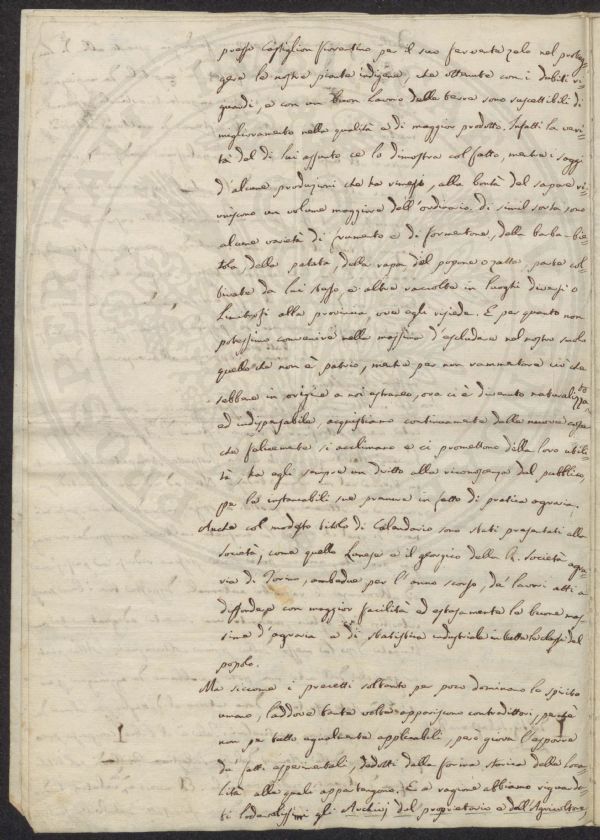 presso Castiglion Fiorentino per il suo fervente zelo nel proteg-
gere le nostre piante indigene, che ottenute con i debiti ri-
guardi, e con un buon lavoro della terra sono suscettibili di
miglioramento nella qualità e di maggior prodotto. Infatti la veri-
tà del di lui assunto ce lo dimostra col fatto, mentre i saggi
d'alcune produzioni che ha rimesse, alla bontà del sapore ri-
uniscono un volume maggiore dell'ordinario. Di simil sorta sono
alcune varietà di frumento e di formentone, della barba-bie-
tola, della patata, della rapa del popone o zatta, parte col-
tivate da lui stesso e altre raccolte in luoghi diversi o
limitrofi alla provincia, ove egli risiede. E per quanto non
potessimo convenire nella massima d'escludere nel nostro suolo
quello che non è patrio, mentre per non rammentare ciò che
sebbene in origine a noi estraneo, ora ci è divenuto naturalizzato
ed indispensabile, acquistiamo continuamente delle nuove cose
che felicemente si acclimano e ci promettono della loro utili-
tà, ha egli sempre un diritto alla riconoscenza del pubblico,
per le instancabili sue premure in fatto di pratica agraria.
Anche col modesto titolo di Calendario sono stati presentati alla
Società, come quello Lunese e il georgico della R. Società agra-
ria di Torino, ambedue per l'anno scorso, de' lavori atti a
diffondere con maggior facilità ed estesamente le buone mas-
sime d'agraria e di statistica industriale in tutte le classi del
popolo.
Ma siccome i precetti soltanto per poco dominano lo spirito
umano, laddove tante volte appariscono contradittori, perchè
non per tutto egualmente applicabili, però giova l'esporre
de' fatti esperimentali, dedotti dalla fonte storica delle loca-
lità alle quali appartengono. E a ragione abbiamo riguarda-
ti lodevolissimi gli Archivj del proprietario e dell'Agricoltore,